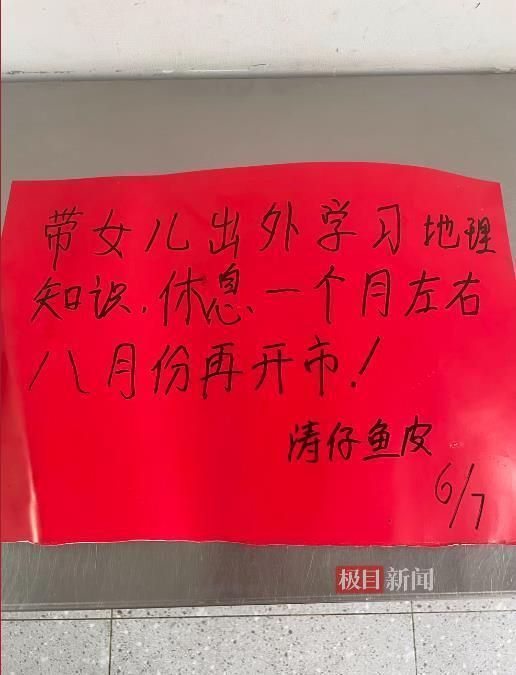 带女儿出外学习地理
知识.休息一个月左右
八月份再开市!
涛仔鱼皮
6/7
极目新闻